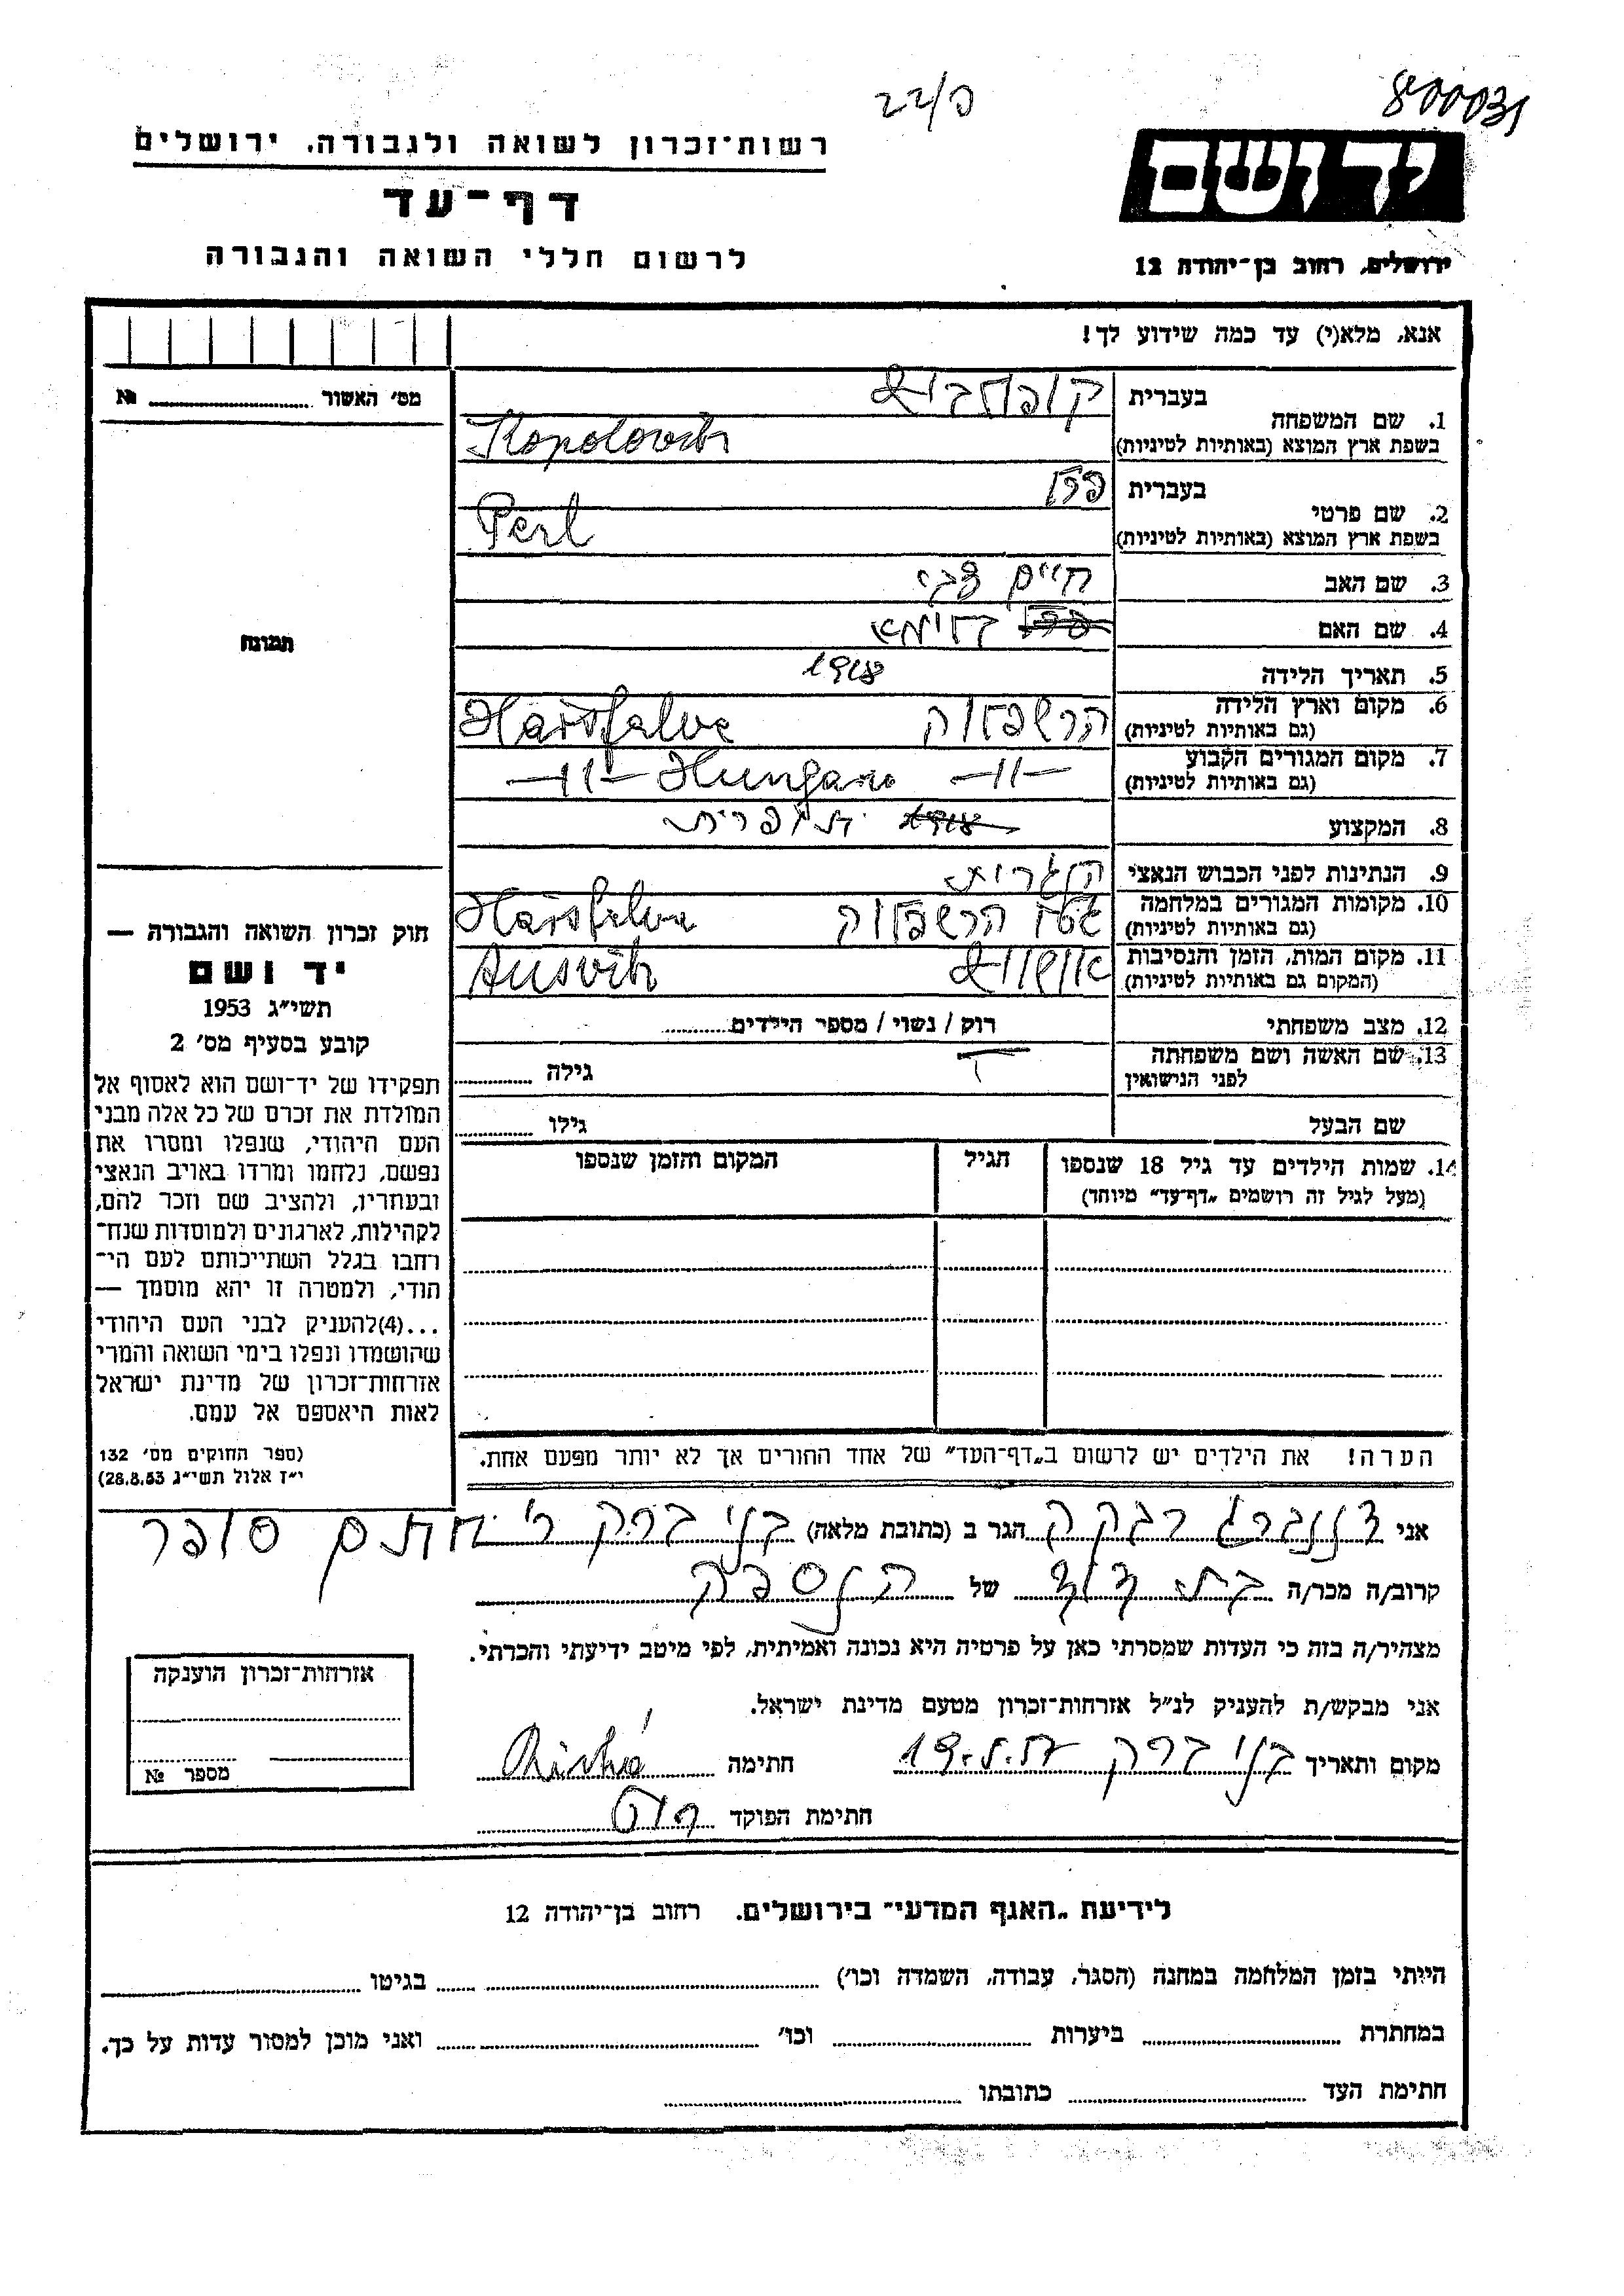 800031
22/פ
יד ושם
ירושלים, רחוב בן־יהודה 12
רשות־זכרון לשואה ולגבורה, ירושלים
דף־עד
לרשום חללי השואה והגבורה
אנא, מלא(י) עד כמה שידוע לך!
מס' האשור №
תמונה
1. שם המשפחה בעברית
בשפת ארץ המוצא (באותיות לטיניות) Kopolovits
2. שם פרטי בעברית פרל
בשפת ארץ המוצא (באותיות לטיניות) Perl
3. שם האב חיים צבי
4. שם האם
5. תאריך הלידה
6. מקום וארץ הלידה
(גם באותיות לטיניות)
7. מקום המגורים הקבוע —11— —11—
(גם באותיות לטיניות)
8. המקצוע תופרית
9. הנתינות לפני הכבוש הנאצי
10. מקומות המגורים במלחמה גטו
(גם באותיות לטיניות)
11. מקום המות, הזמן והנסיבות Ausvits
(המקום גם באותיות לטיניות)
12. מצב משפחתי רוק / נשוי / מספר הילדים
13. שם האשה ושם משפחתה גילה
לפני הנישואין
שם הבעל גילו
14. שמות הילדים עד גיל 18 שנספו הגיל המקום והזמן שנספו
(מעל לגיל זה רושמים „דף־עד” מיוחד)
הערה! את הילדים יש לרשום ב„דף־העד” של אחד ההורים אך לא יותר מפעם אחת.
חוק זכרון השואה והגבורה —
יד ושם
תשי״ג 1953
קובע בסעיף מס' 2
תפקידו של יד־ושם הוא לאסוף אל
המולדת את זכרם של כל אלה מבני
העם היהודי, שנפלו ומסרו את
נפשם, נלחמו ומרדו באויב הנאצי
ובעוזריו, ולהציב שם וזכר להם,
לקהילות, לארגונים ולמוסדות שנח־
רחבו בגלל השתייכותם לעם הי־
הודי, ולמטרה זו יהא מוסמך —
...(4)להעניק לבני העם היהודי
שהושמדו ונפלו בימי השואה והמרי
אזרחות־זכרון של מדינת ישראל
לאות היאספם אל עמם.
(ספר החוקים מס' 132
י״ז אלול תשי״ג 28.8.53)
אני רבקה הגר ב (כתובת מלאה) בני ברק ר' חתם סופר
קרוב/ה מכר/ה בת דוד של הנספה
מצהיר/ה בזה כי העדות שמסרתי כאן על פרטיה היא נכונה ואמיתית, לפי מיטב ידיעתי והכרתי.
אני מבקש/ת להעניק לנ״ל אזרחות־זכרון מטעם מדינת ישראל.
מקום ותאריך בני ברק חתימה
חתימת הפוקד
אזרחות־זכרון הוענקה
מספר №
לידיעת „האגף המדעי” בירושלים, רחוב בן־יהודה 12
הייתי בזמן המלחמה במחנה (הסגר, עבודה, השמדה וכו') בגיטו
במחתרת ביערות וכו' ואני מוכן למסור עדות על כך.
חתימת העד כתובתו